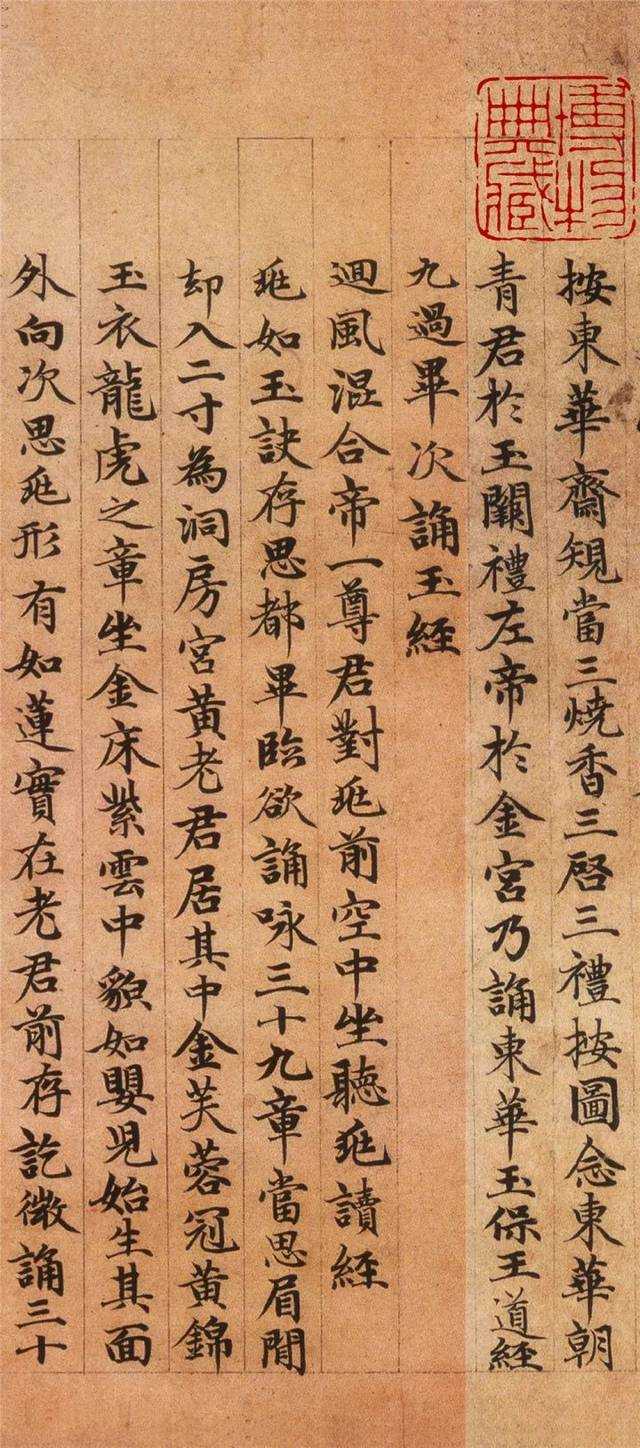 博物
典藏
按東華齋規當三燒香三啓三禮按圖念東華朝
青君於玉闕禮左帝於金宮乃誦東華玉保王道經
九過畢次誦玉經
迴風混合帝一尊君對兆前空中坐聽兆讀經
兆如玉訣存思都畢臨欲誦咏三十九章當思眉間
却入二寸為洞房宮黃老君居其中金芙蓉冠黃錦
玉衣龍虎之章坐金床紫雲中貌如嬰兒始生其面
外向次思兆形有如蓮實在老君前存訖微誦三十